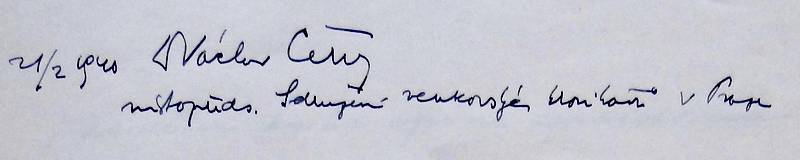 21/2 1940 Václav Černý
místopředs. Sdružení venkovských v Praze